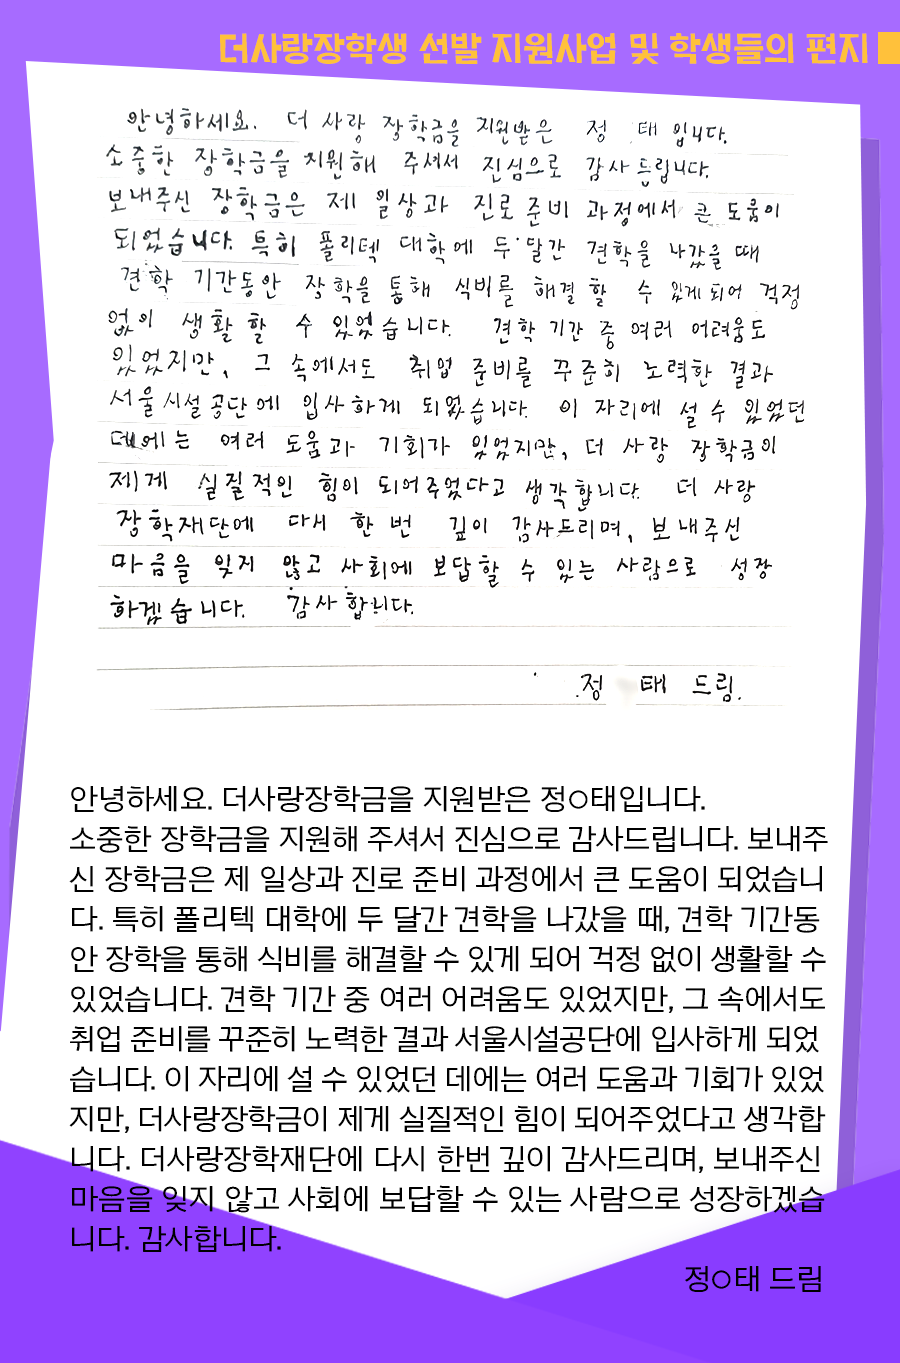 더사랑장학생 선발 지원사업 및 학생들의 편지
안녕하세요. 더 사랑 장학금을 지원받은 정 태 입니다.
소중한 장학금을 지원해 주셔서 진심으로 감사드립니다.
보내주신 장학금은 제 일상과 진로 준비 과정에서 큰 도움이
되었습니다. 특히 폴리텍 대학에 두 달간 견학을 나갔을 때
견학 기간동안 장학을 통해 식비를 해결 할 수 있게 되어 걱정
없이 생활 할 수 있었습니다. 견학 기간 중 여러 어려움도
있었지만, 그 속에서도 취업 준비를 꾸준히 노력한 결과
서울시설공단에 입사하게 되었습니다. 이 자리에 설 수 있었던
데에는 여러 도움과 기회가 있었지만, 더 사랑 장학금이
제게 실질적인 힘이 되어주었다고 생각합니다. 더 사랑
장학재단에 다시 한 번 깊이 감사드리며, 보내주신
마음을 잊지 않고 사회에 보답할 수 있는 사람으로 성장
하겠습니다. 감사합니다.
정 태 드림.
안녕하세요. 더사랑장학금을 지원받은 정○태입니다.
소중한 장학금을 지원해 주셔서 진심으로 감사드립니다. 보내주
신 장학금은 제 일상과 진로 준비 과정에서 큰 도움이 되었습니
다. 특히 폴리텍 대학에 두 달간 견학을 나갔을 때, 견학 기간동
안 장학을 통해 식비를 해결할 수 있게 되어 걱정 없이 생활할 수
있었습니다. 견학 기간 중 여러 어려움도 있었지만, 그 속에서도
취업 준비를 꾸준히 노력한 결과 서울시설공단에 입사하게 되었
습니다. 이 자리에 설 수 있었던 데에는 여러 도움과 기회가 있었
지만, 더사랑장학금이 제게 실질적인 힘이 되어주었다고 생각합
니다. 더사랑장학재단에 다시 한번 깊이 감사드리며, 보내주신
마음을 잊지 않고 사회에 보답할 수 있는 사람으로 성장하겠습
니다. 감사합니다.
정○태 드림